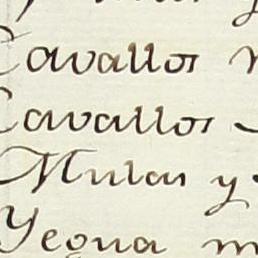 Cavallos
Cavallos
Mulas y
Yegua m